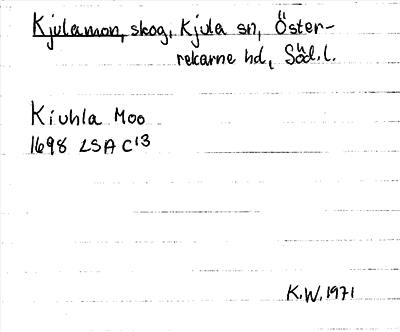 Kjulamon, skog, Kjula sn, Öster-
rekarne hd, Söd. l.
Kiuhla Moo
1698 LSA C13
K.W. 1971